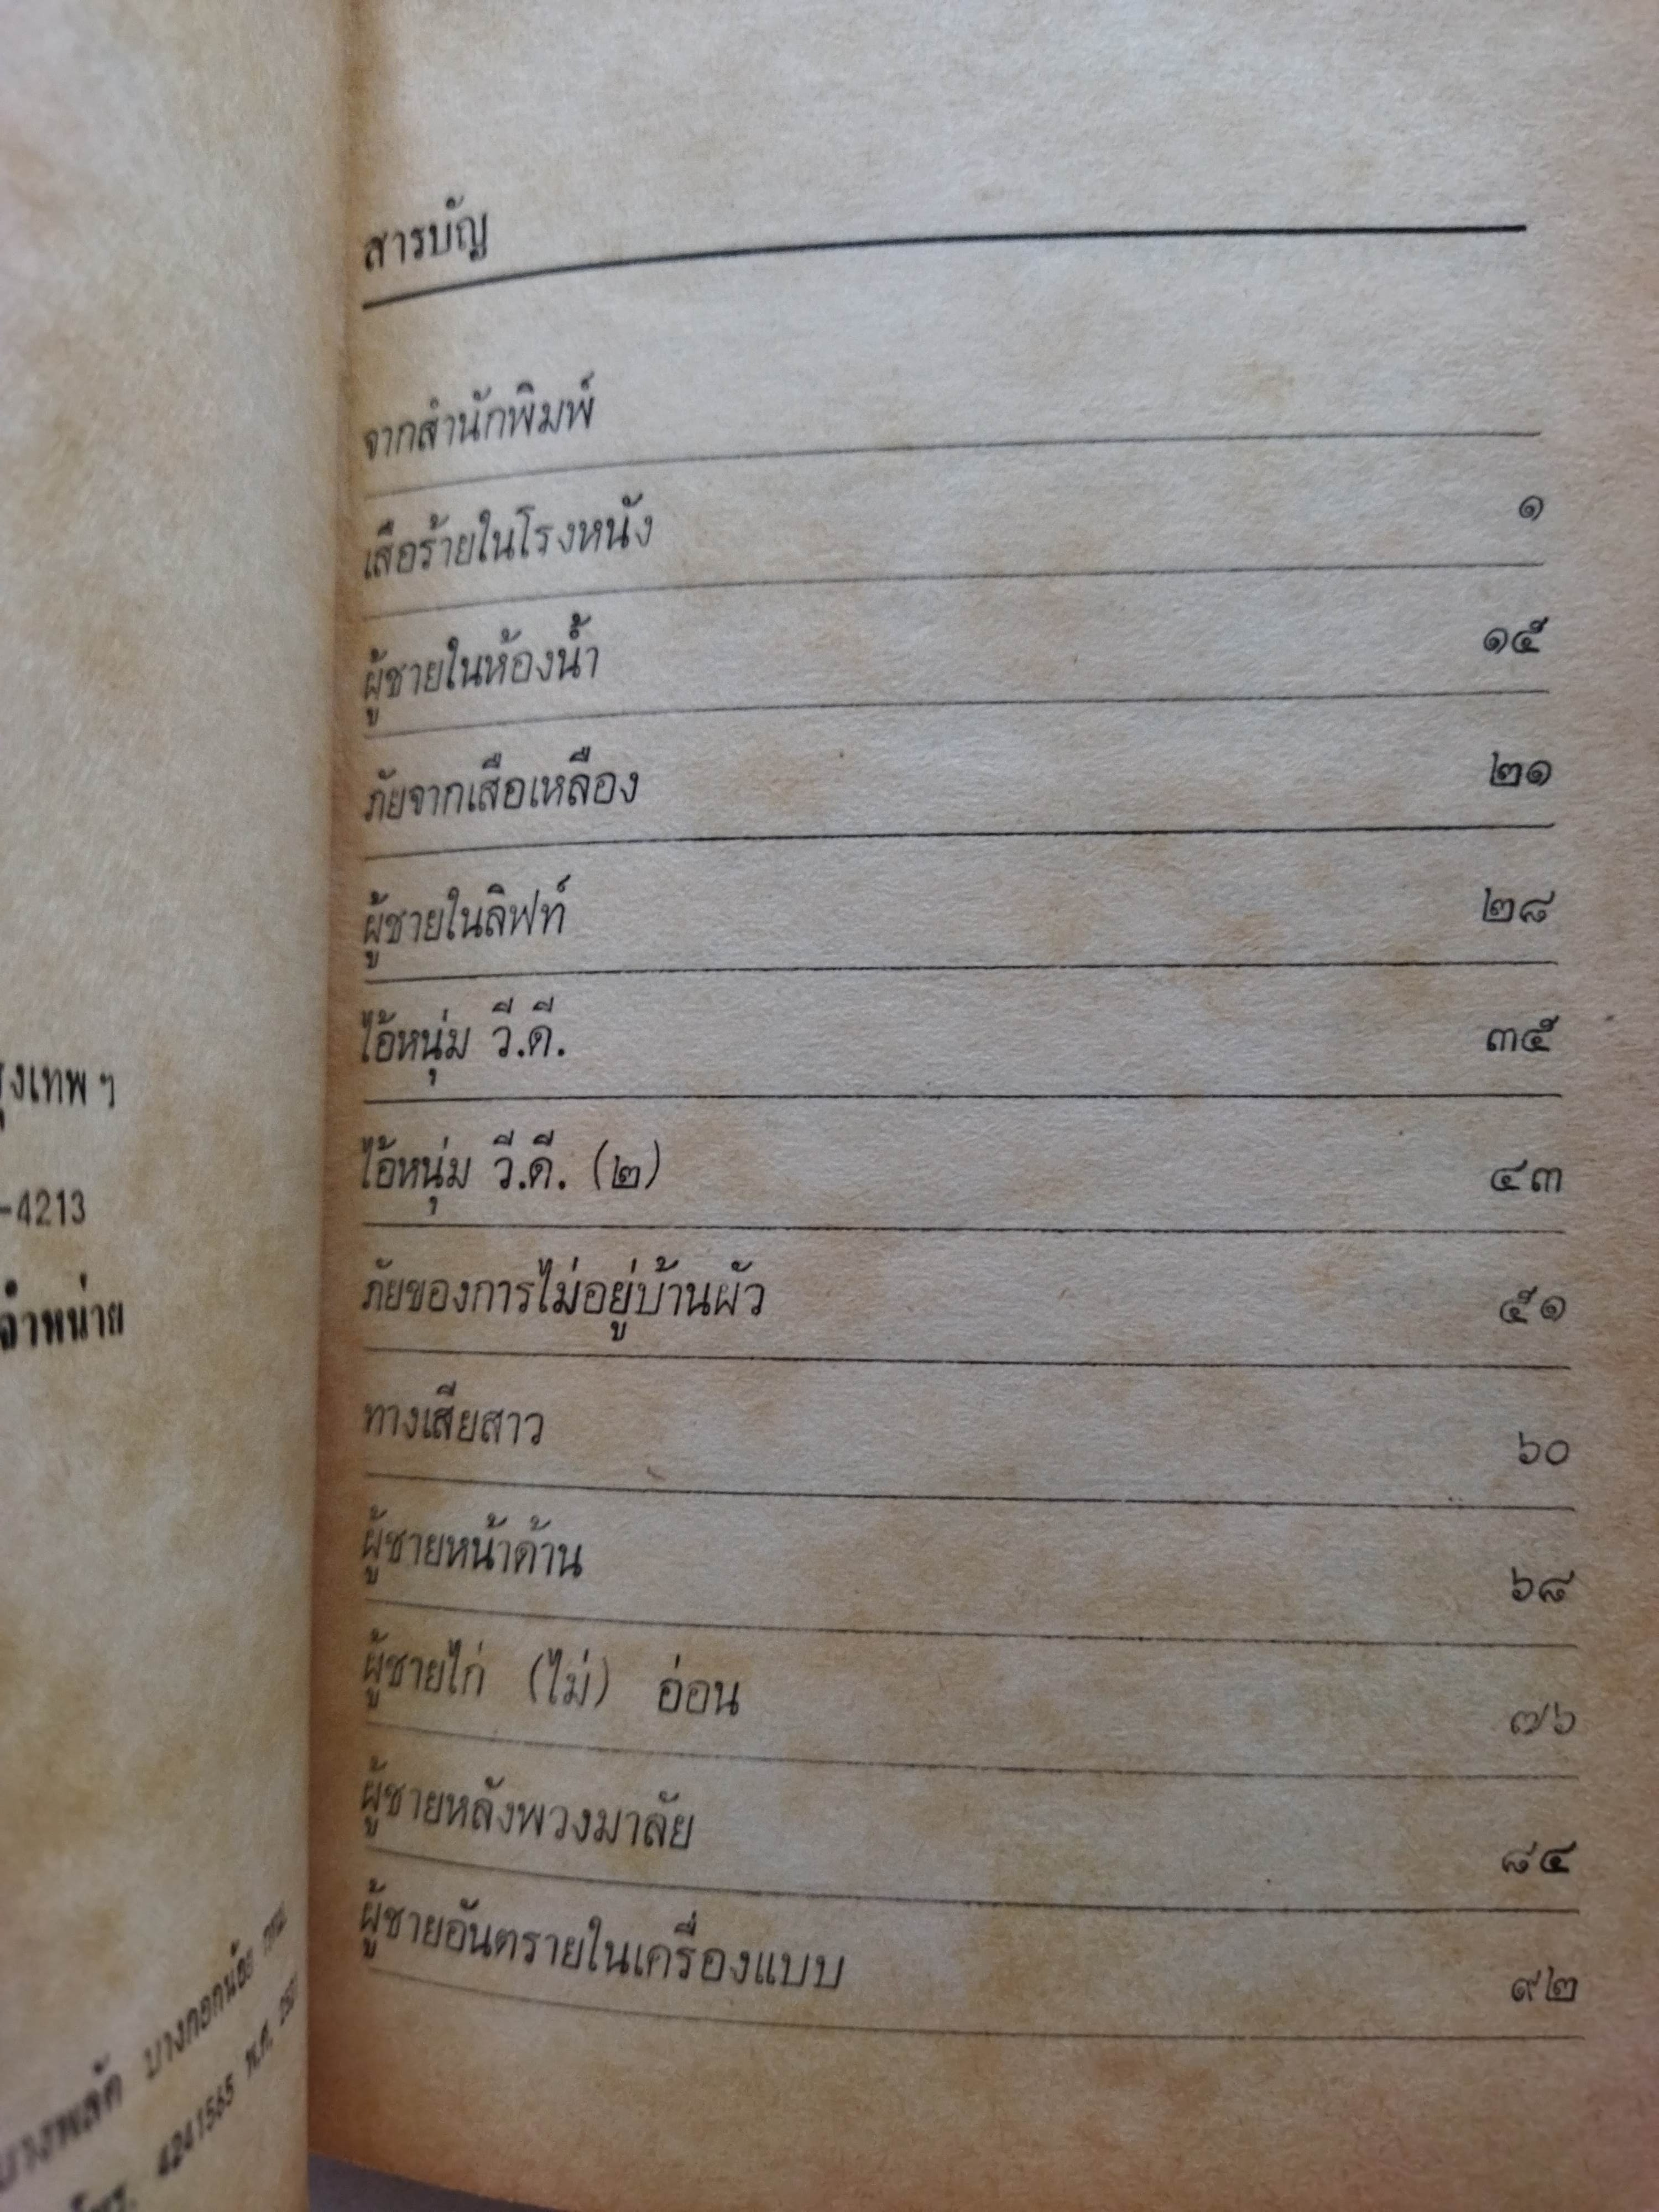 สารบัญ
จากสำนักพิมพ์
เสือร้ายในโรงหนัง ๑
ผู้ชายในห้องน้ำ ๑๕
ภัยจากเสือเหลือง ๒๑
ผู้ชายในลิฟท์ ๒๘
ไอ้หนุ่ม วี.ดี. ๓๕
ไอ้หนุ่ม วี.ดี. (๒) ๔๓
ภัยของการไม่อยู่บ้านผัว ๕๑
ทางเสียสาว ๖๐
ผู้ชายหน้าด้าน ๖๘
ผู้ชายไก่ (ไม่) อ่อน ๗๖
ผู้ชายหลังพวงมาลัย ๘๔
ผู้ชายอันตรายในเครื่องแบบ ๙๒
ุงเทพฯ
-4213
จำหน่าย
บางพลัด บางกอกน้อย กทม.
โทร. 4241565 พ.ศ.